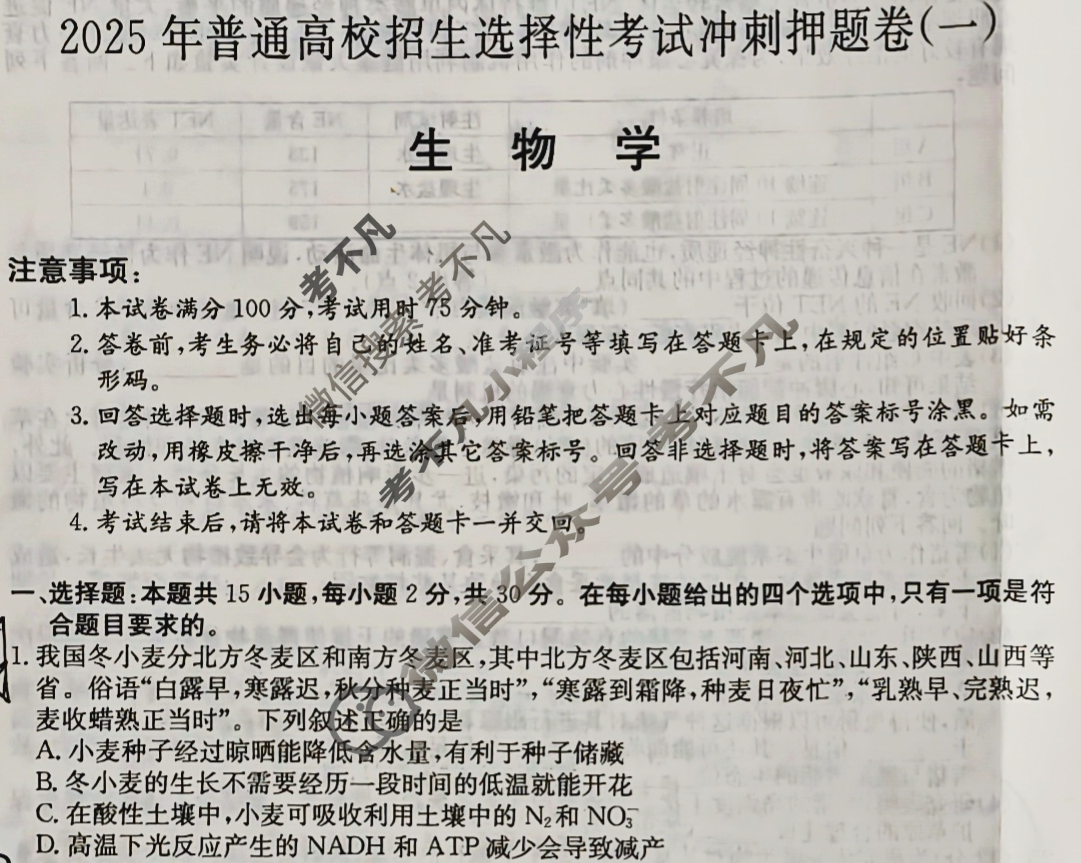 2025年普通高校招生选择性考试冲刺押题卷(一)
生 物 学
注意事项:
1. 本试卷满分100分,考试用时75分钟。
2. 答卷前,考生务必将自己的姓名、准考证号等填写在答题卡上,在规定的位置贴好条
形码。
3. 回答选择题时,选出每小题答案后,用铅笔把答题卡上对应题目的答案标号涂黑。如需
改动,用橡皮擦干净后,再选涂其它答案标号。回答非选择题时,将答案写在答题卡上,
写在本试卷上无效。
4. 考试结束后,请将本试卷和答题卡一并交回。
一、选择题:本题共15小题,每小题2分,共30分。在每小题给出的四个选项中,只有一项是符
合题目要求的。
1. 我国冬小麦分北方冬麦区和南方冬麦区,其中北方冬麦区包括河南、河北、山东、陕西、山西等
省。俗语“白露早,寒露迟,秋分种麦正当时”,“寒露到霜降,种麦日夜忙”,“乳熟早、完熟迟,
麦收蜡熟正当时”。下列叙述正确的是
A. 小麦种子经过晾晒能降低含水量,有利于种子储藏
B. 冬小麦的生长不需要经历一段时间的低温就能开花
C. 在酸性土壤中,小麦可吸收利用土壤中的 N₂和 NO₃⁻
D. 高温下光反应产生的 NADH 和 ATP 减少会导致减产
考不凡
微信搜索 考不凡
考不凡小程序
微信公众号 考不凡